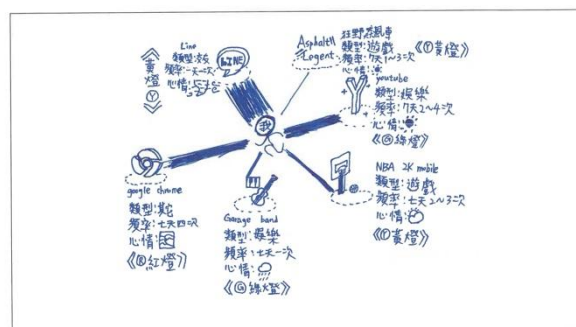 Line
類型:
頻率:一天一次
心情:
《黃燈Ⓨ》
LINE
Asphalt 11
Legent
狂野飆車
類型:遊戲
頻率:7天1~3次
心情:
《Ⓨ黃燈》
youtube
類型:娛樂
頻率:7天2~4次
心情:
《Ⓖ綠燈》
我
google chrome
類型:其它
頻率:七天四次
心情:
《Ⓡ紅燈》
Garage band
類型:娛樂
頻率:七天一次
心情:
《Ⓖ綠燈》
NBA 2K mobile
類型:遊戲
頻率:七天2~3次
心情:
《Ⓨ黃燈》